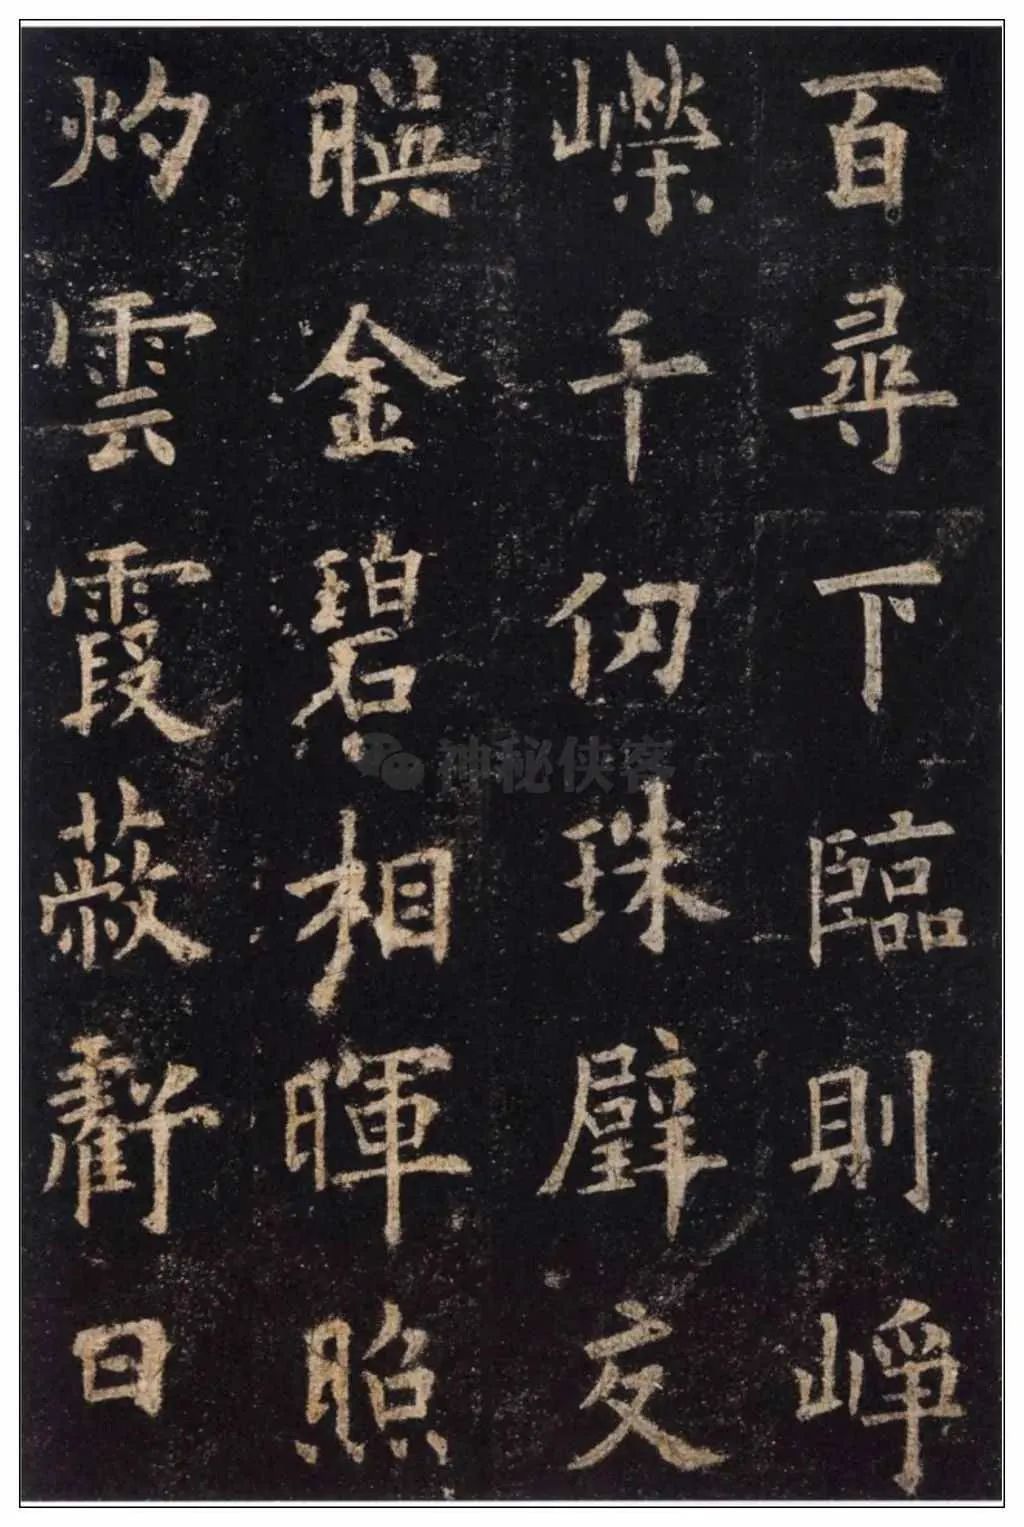 百尋下臨則崢
嶸千仞珠璧交
暎金碧相暉照
灼雲霞蔽虧日
神秘侠客